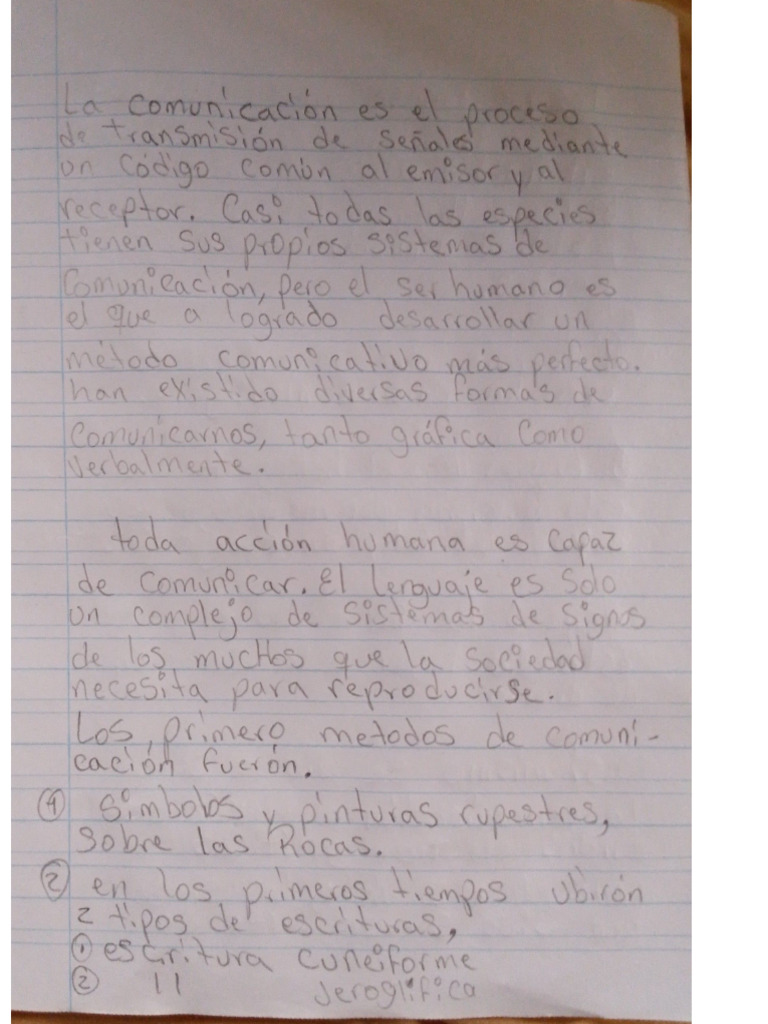 La comunicación es el proceso
de transmisión de señales mediante
un código común al emisor y al
receptor. Casi todas las especies
tienen sus propios sistemas de
Comunicación, pero el ser humano es
el que a logrado desarrollar un
método comunicativo más perfecto.
han existido diversas formas de
Comunicarnos, tanto gráfica Como
verbalmente.
toda acción humana es capaz
de comunicar. El lenguaje es Solo
un complejo de sistemas de signos
de los mucHos que la Sociedad
necesita para reproducirse.
Los primero metodos de comuni-
cación fuerón.
① Simbolos y pinturas rupestres,
sobre las Rocas.
② en los primeros tiempos ubirón
2 tipos de escrituras,
① escritura cuneiforme
② 11 Jeroglífica